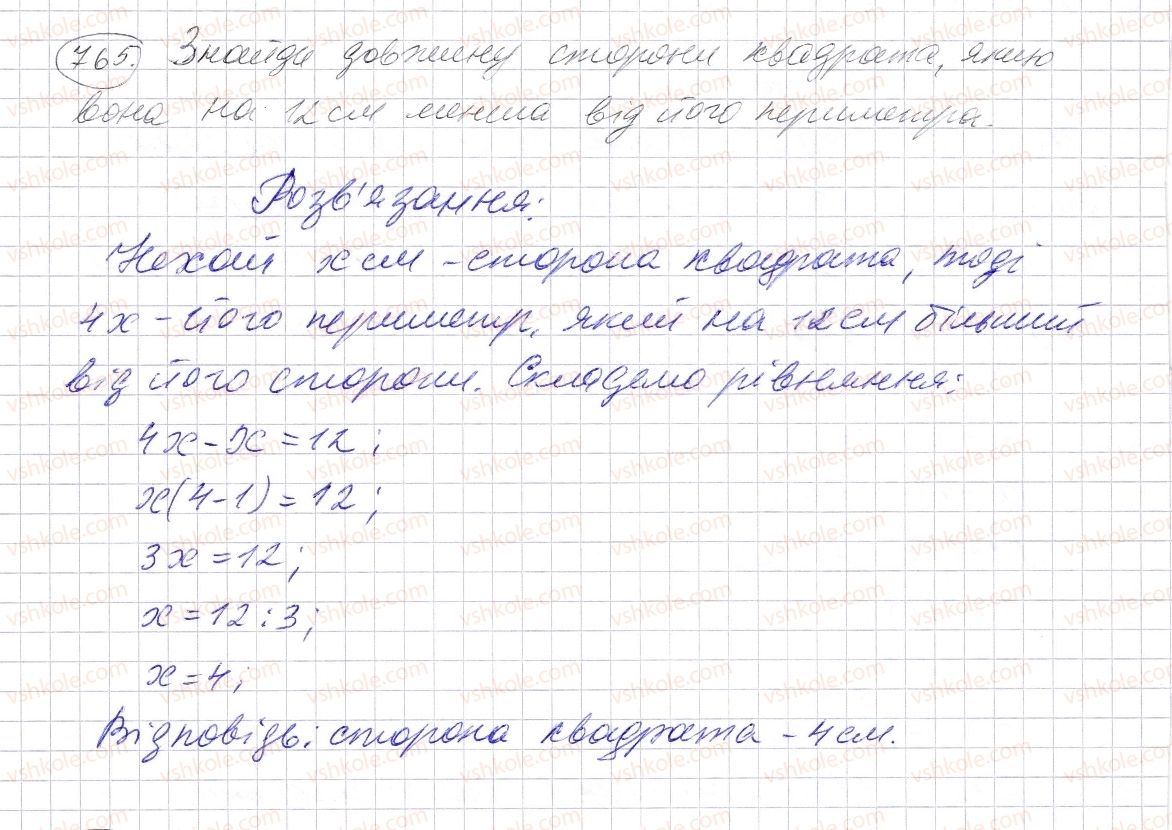 765. Знайди довжину сторони квадрата, якщо
вона на 12 см менша від його периметра.
Розв'язання:
Нехай x см - сторона квадрата, тоді
4x - його периметр, який на 12 см більший
від його сторони. Складемо рівняння:
4x - x = 12;
x(4-1) = 12;
3x = 12;
x = 12 : 3;
x = 4;
Відповідь: сторона квадрата - 4 см.